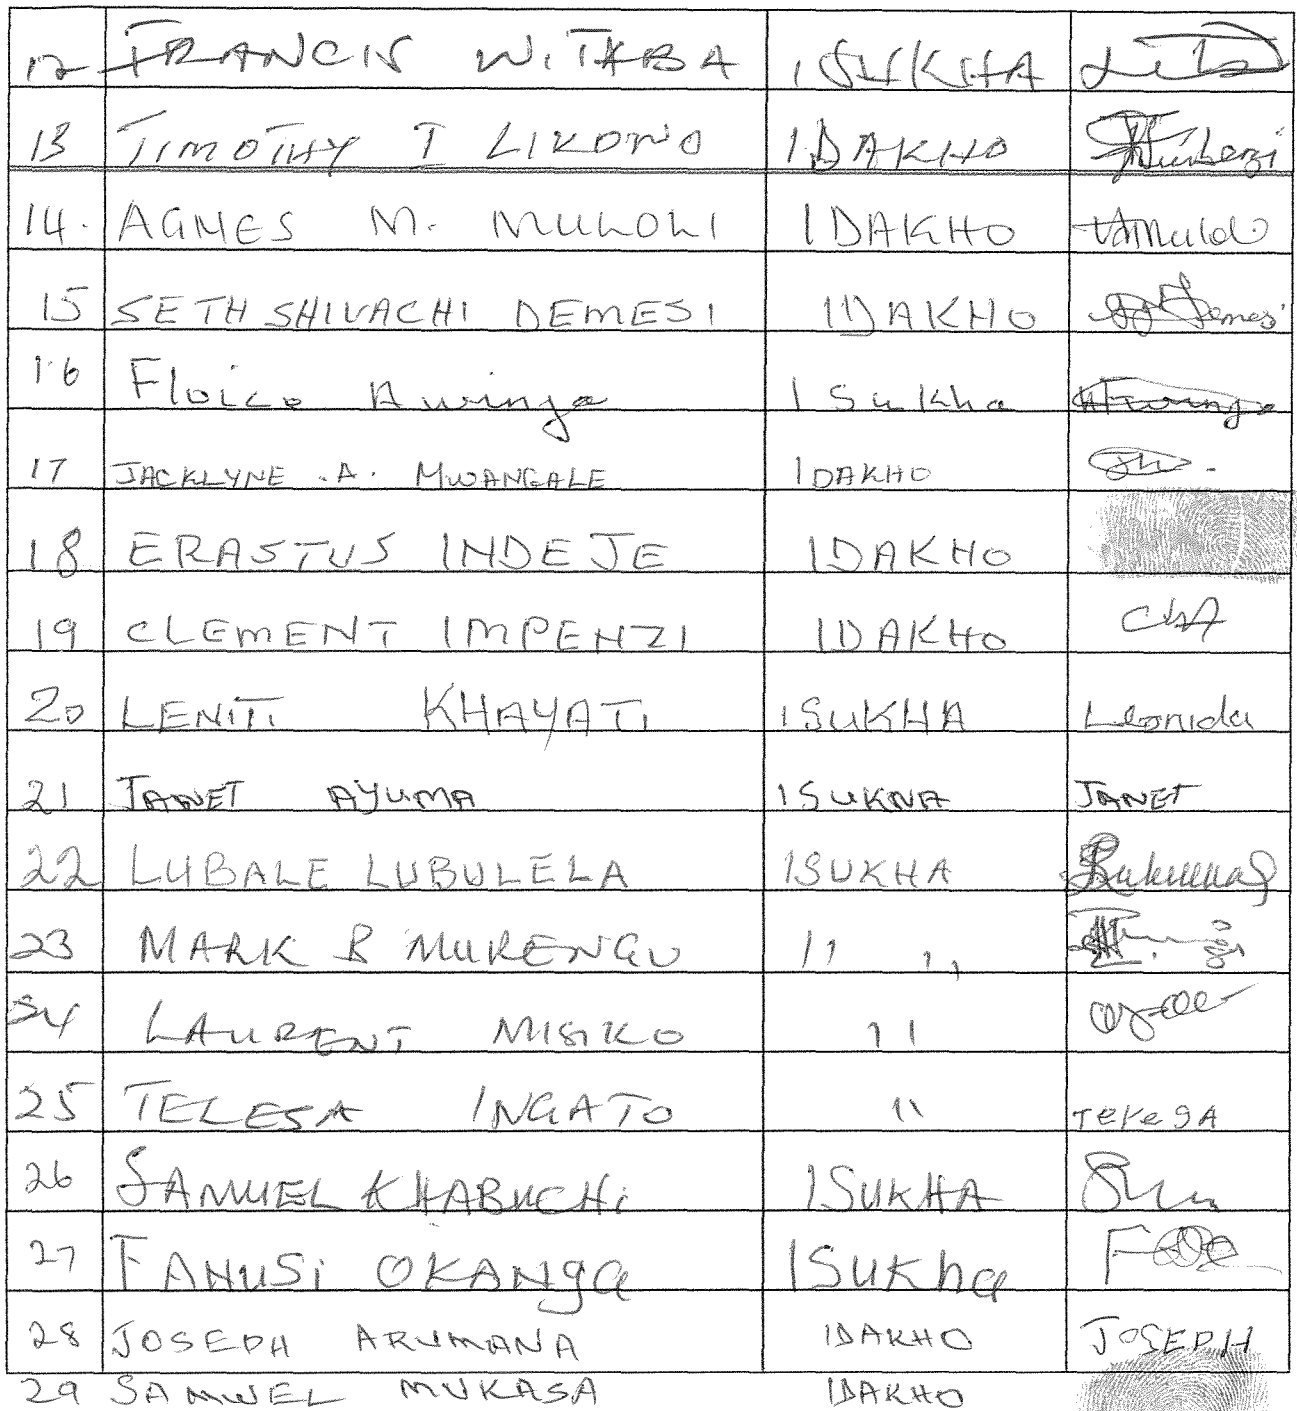 12 FRANCIS WITABA ISUKHA
13 TIMOTHY I LIKONO IDAKHO
14. AGNES M. MULOLI IDAKHO
15 SETH SHIVACHI DEMESI IDAKHO Demesi
16 Floice Awinja Isukha Awinja
17 JACKLYNE .A. MWANGALE IDAKHO
18 ERASTUS INDEJE IDAKHO
19 CLEMENT IMPENZI IDAKHO
20 LENITI KHAYATI ISUKHA Leonida
21 JANET AYUMA ISUKHA JANET
22 LUBALE LUBULELA ISUKHA
23 MARK B MURENGU ,, ,,
24 LAURENT MISIKO ,,
25 TELESA INGATO ,, TereSA
26 SAMUEL KHABUCHi ISUKHA
27 FANUSi OKANga ISUKha
28 JOSEPH ARUMANA IDAKHO JOSEPH
29 SAMWEL MUKASA IDAKHO